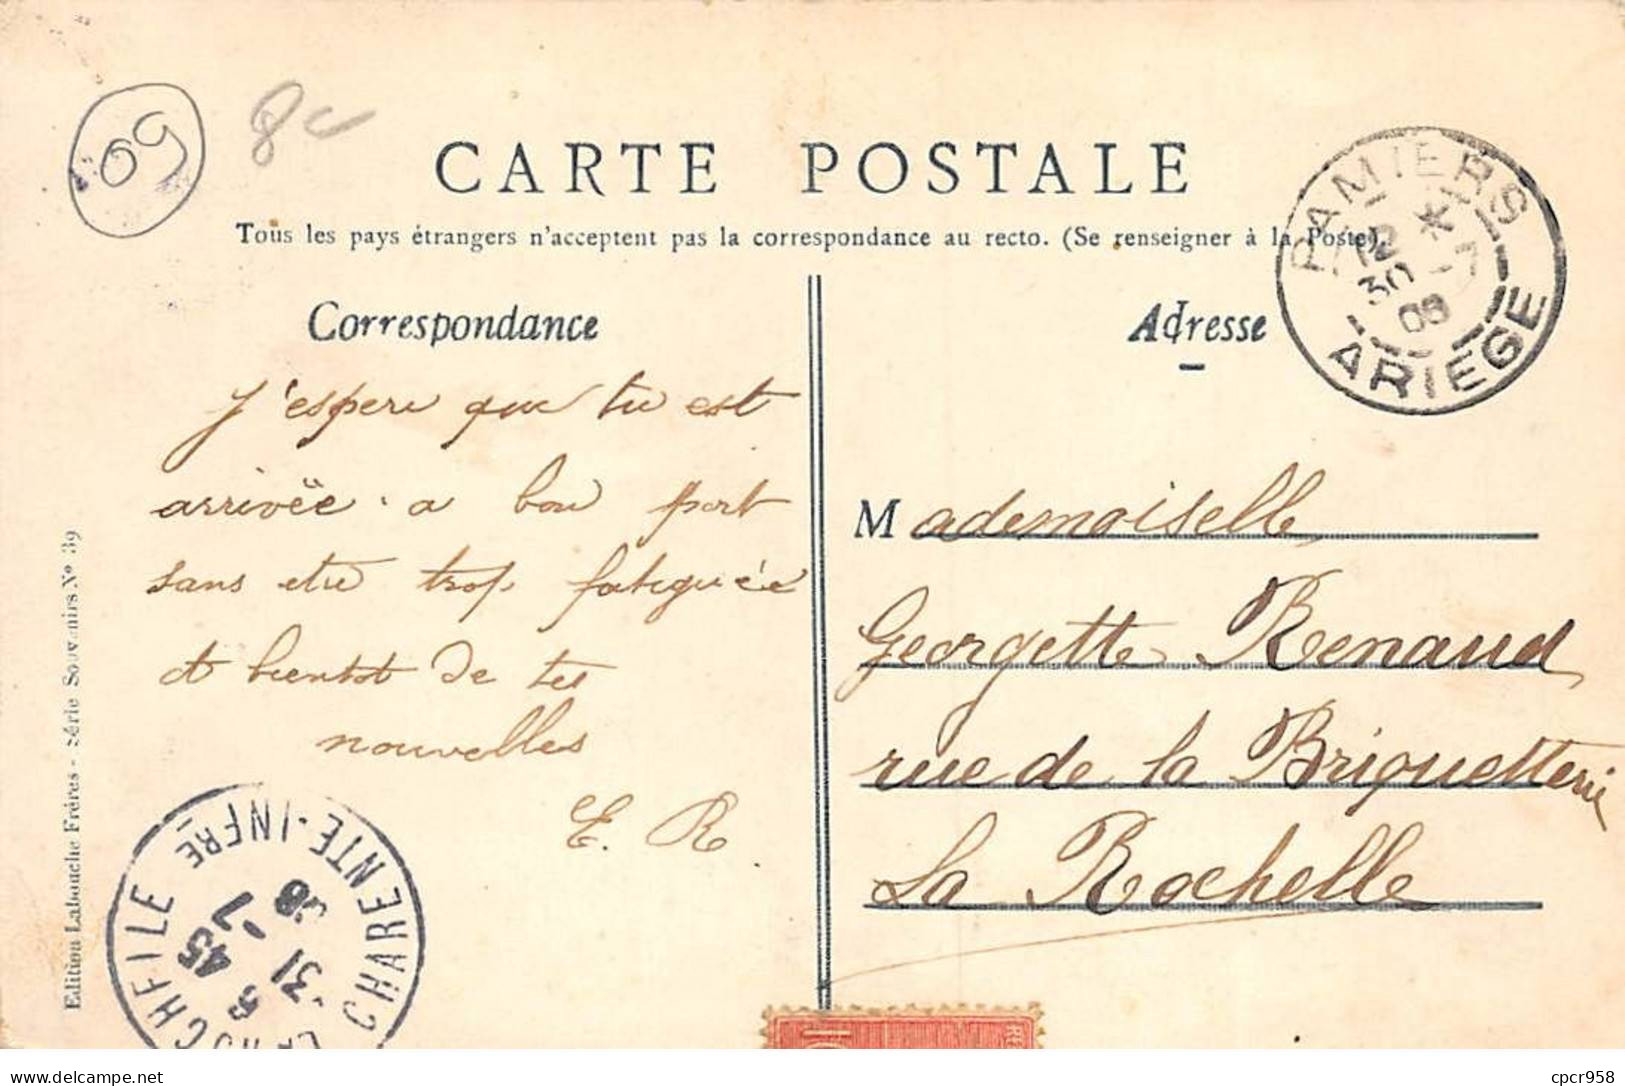 09
8c
CARTE POSTALE
Tous les pays étrangers n'acceptent pas la correspondance au recto. (Se renseigner à la Poste).
PAMIERS
12 *
30 -7
08
ARIEGE
Correspondance
j'espere que tu est
arrivée a bon port
sans etre trop fatiguée
et bientot de tes
nouvelles
E. R.
Adresse
Mademoiselle
Georgette Renaud
rue de la Briquetterie
La Rochelle
Edition Labouche Frères - Série Souvenirs N° 39
LA ROCHELLE CHARENTE-INFRE
5 45
31 -7
08
delcampe.net
cpcr958